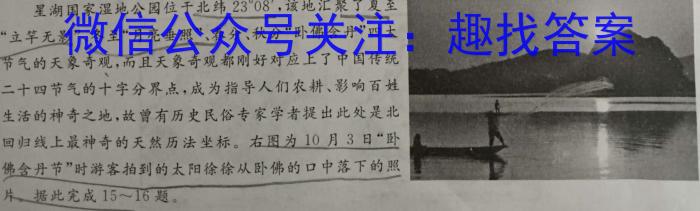 星湖国家湿地公园位于北纬23°08′,该地汇聚了夏至
"立竿无影"、冬至"
节气的天象奇观,而且天象奇观都刚好对应上了中国传统
二十四节气的十字分界点,成为指导人们农耕、影响百姓
生活的神奇之地,故曾有历史民俗专家学者提出此处是北
回归线上最神奇的天然历法坐标。右图为10月3日"卧
佛含丹节"时游客拍到的太阳徐徐从卧佛的口中落下的照
片。据此完成15～16题。
微信公众号关注:趣找答案